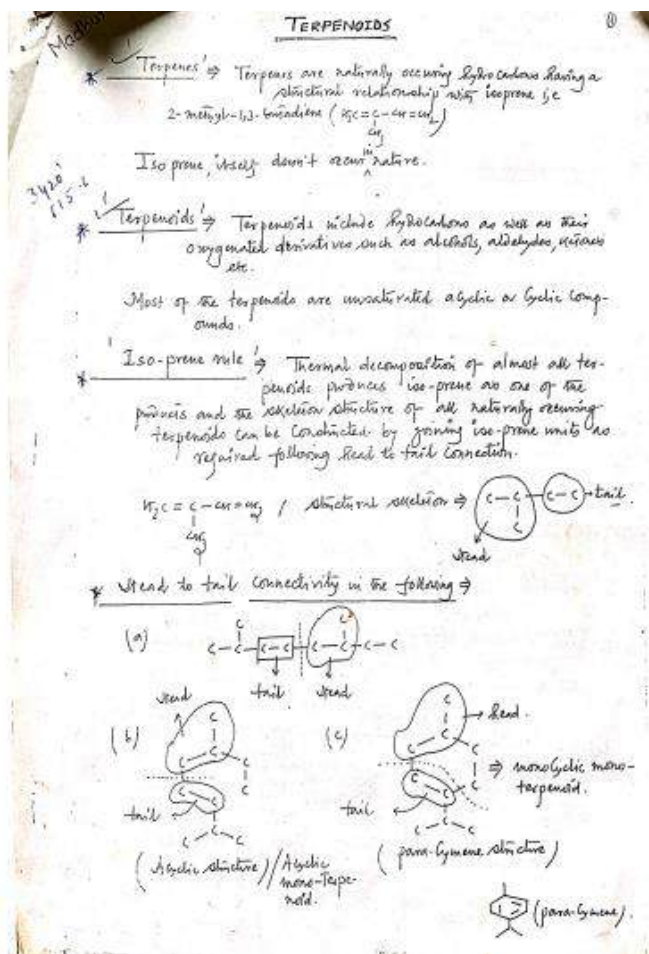 TERPENOIDS
①
Madhu
* Terpenes' ⇒ Terpenes are naturally occuring hydrocarbons having a
structural relationship with isoprene i,e
2-methyl-1,3-butadiene (H₂C=C-CH=CH₂)
CH₃
Isoprene, itself doesn't occur in nature.
3420
615
* 'Terpenoids' ⇒ Terpenoids include hydrocarbons as well as their
oxygenated derivatives such as alcohols, aldehydes, ketones
etc.
Most of the terpenoids are unsaturated acyclic or cyclic comp-
ounds.
* 'Iso-prene rule' ⇒ Thermal decomposition of almost all ter-
penoids produces iso-prene as one of the
products and the skeleton structure of all naturally occuring
terpenoids can be constructed by joining iso-prene units as
required following head to tail connection.
H₂C=C-CH=CH₂ / structural skeleton ⇒ C-C-C-C → tail.
CH₃ C
Head
* Head to tail connectivity in the following ⇒
(a) C
C
C-C-C-C-C-C-C-C
tail Head
Head
(b) C
C-C
C
C
C-C
tail
C
C-C-C
(Acyclic structure) // Acyclic
mono-Terpe-
noid.
(c) C
→ head.
C-C
C
C
C-C
⇒ monocyclic mono-
terpenoid.
tail
C
C-C-C
(para-Cymene structure)
(para-Cymene).